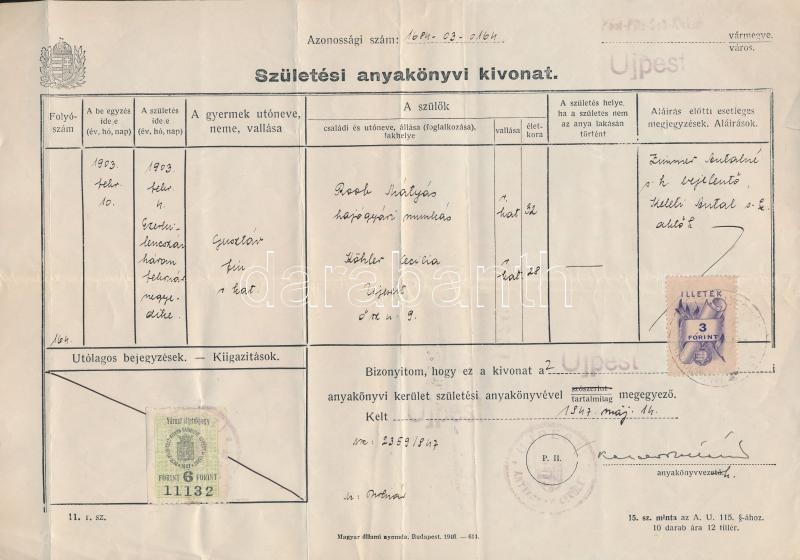 Azonossági szám: 1684-03-0164.
vármegye.
város.
Ujpest
Születési anyakönyvi kivonat.
Folyó-
szám
A be egyzés
ide e
(év, hó, nap)
A születés
ide e
(év, hó, nap)
A gyermek utóneve,
neme, vallása
A szülők
családi és utóneve, állása (foglalkozása),
lakhelye
vallása
élet-
kora
A születés helye,
ha a születés nem
az anya lakásán
történt
Aláírás előtti esetleges
megjegyzések. Aláírások.
164.
1903
febr.
10.
1903.
febr.
4.
Ezerki-
lencszáz
három
február
negye-
dike.
Gusztáv
fiu
r. kat.
Raab Mátyás
hajógyári munkás
r.
kat
32
Köhler Cecilia
Ujpest
r.
kat
28
9.
Zimmer Antalné
s. k. bejelentő,
Antal s. k.
ILLETÉK
3
FORINT
Utólagos bejegyzések. — Kiigazitások.
Városi illetékjegy
FORINT 6 FORINT
11132
Ujpest
Bizonyitom, hogy ez a kivonat a 2
anyakönyvi kerület születési anyakönyvével szószerint tartalmilag megegyező.
Kelt 1947. máj. 14.
2359/947
P. H.
anyakönyvvezető h.
11. r. sz.
Magyar állami nyomda, Budapest. 1946 — 614.
15. sz. minta az A. U. 115. §-ához.
10 darab ára 12 fillér.
darabanth